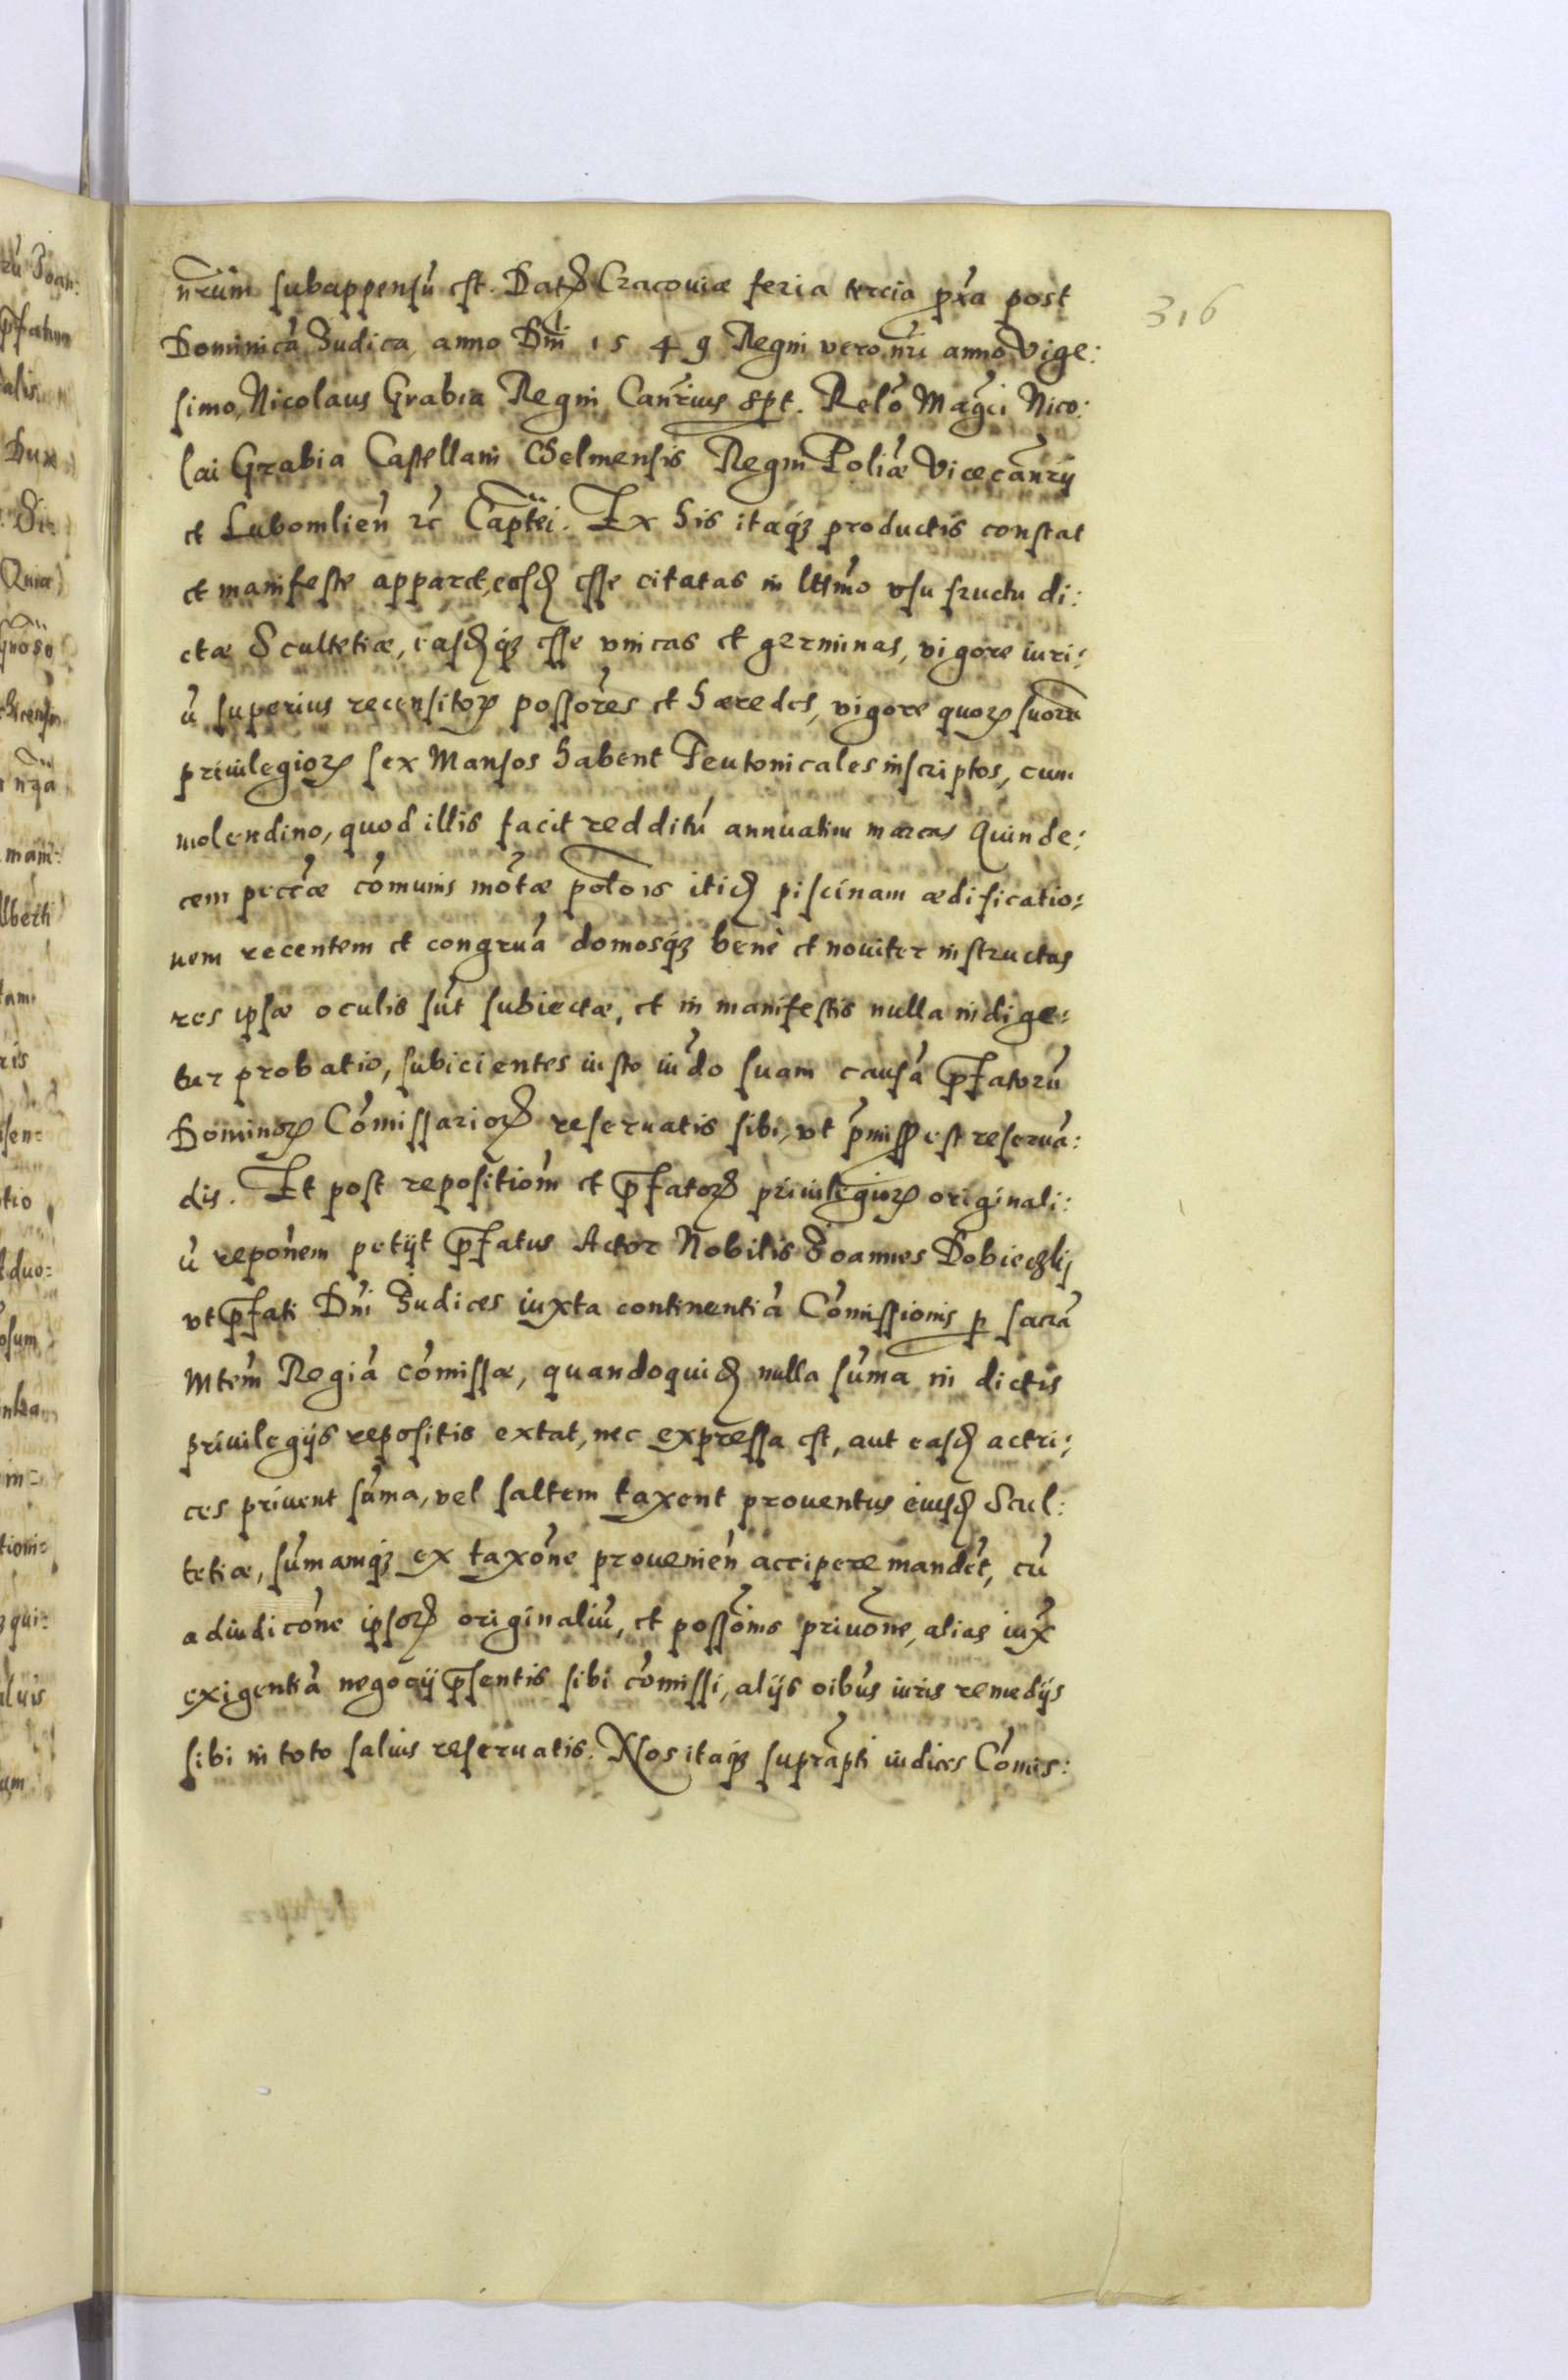 316
nrũm subappensũ est. Datꝫ Cracoviæ feria tercia pxã post
Dominicã Judica, anno Dñi 1549 Regni vero nri anno Vige:
simo, Nicolaus Grabia Regni Canrius sspt. Relõ Magci Nico:
lai Grabia Castellani Chelmensis Regni Poliæ Vicecanrij
et Lubomlieñ ꝛc Captei. Ex his itaqꝫ productis constat
et manifeste apparet, easdꝫ esse citatas in lttimo vsu fructu di:
ctæ Scultetiæ, easdqꝫ esse vnicas et germinas, vigore iuri:
ũ superius recensitoꝝ possores et hæredes, vigore quoꝝ suorũ
priuilegioꝝ sex Mansos habent Teutonicales inscriptos, cum
molendino, quod illis facit redditũ annuatim marcas Quinde:
cem peccæ cõmunis mõtæ polõis itidꝫ piscinam ædificatio:
nem recentem et congruã domosqꝫ benè et noviter instructas
res ipsæ oculis sũt subiectæ, et in manifestis nulla indige:
tur probatio, subicientes iusto iũdo suam causã pfatorũ
Dominoꝝ Cõmissarioꝝ reseruatis sibi, vt pmissꝫ est reseruã:
dis. Et post repositiom̃ et pfatoꝝ priuilegioꝝ originali:
ũ reponem petijt pfatus Actor Nobilis Joannes Dobieczkij
vt pfati Dñi Judices iuxta continentiã Cõmissionis p sacrã
Mtem̃ Regiã cõmissæ, quandoquidꝫ nulla sũma in dictis
priuilegijs repositis extat, nec expressa est, aut easdꝫ actri:
ces priuent sũma, vel saltem taxent prouentus eiusdꝫ Scul:
tetiæ, sũmamqꝫ ex taxõne proueniẽn accipere mandẽt, cũ
adiudicõne ipsoꝝ originaliũ, et possõnis priuõne, alias iux
exigentiã negocij psentis sibi cõmissi, alijs oibus iuris remedijs
sibi in toto saluis reseruatis. Nos itaqꝫ suprapti iudices Cõmis: